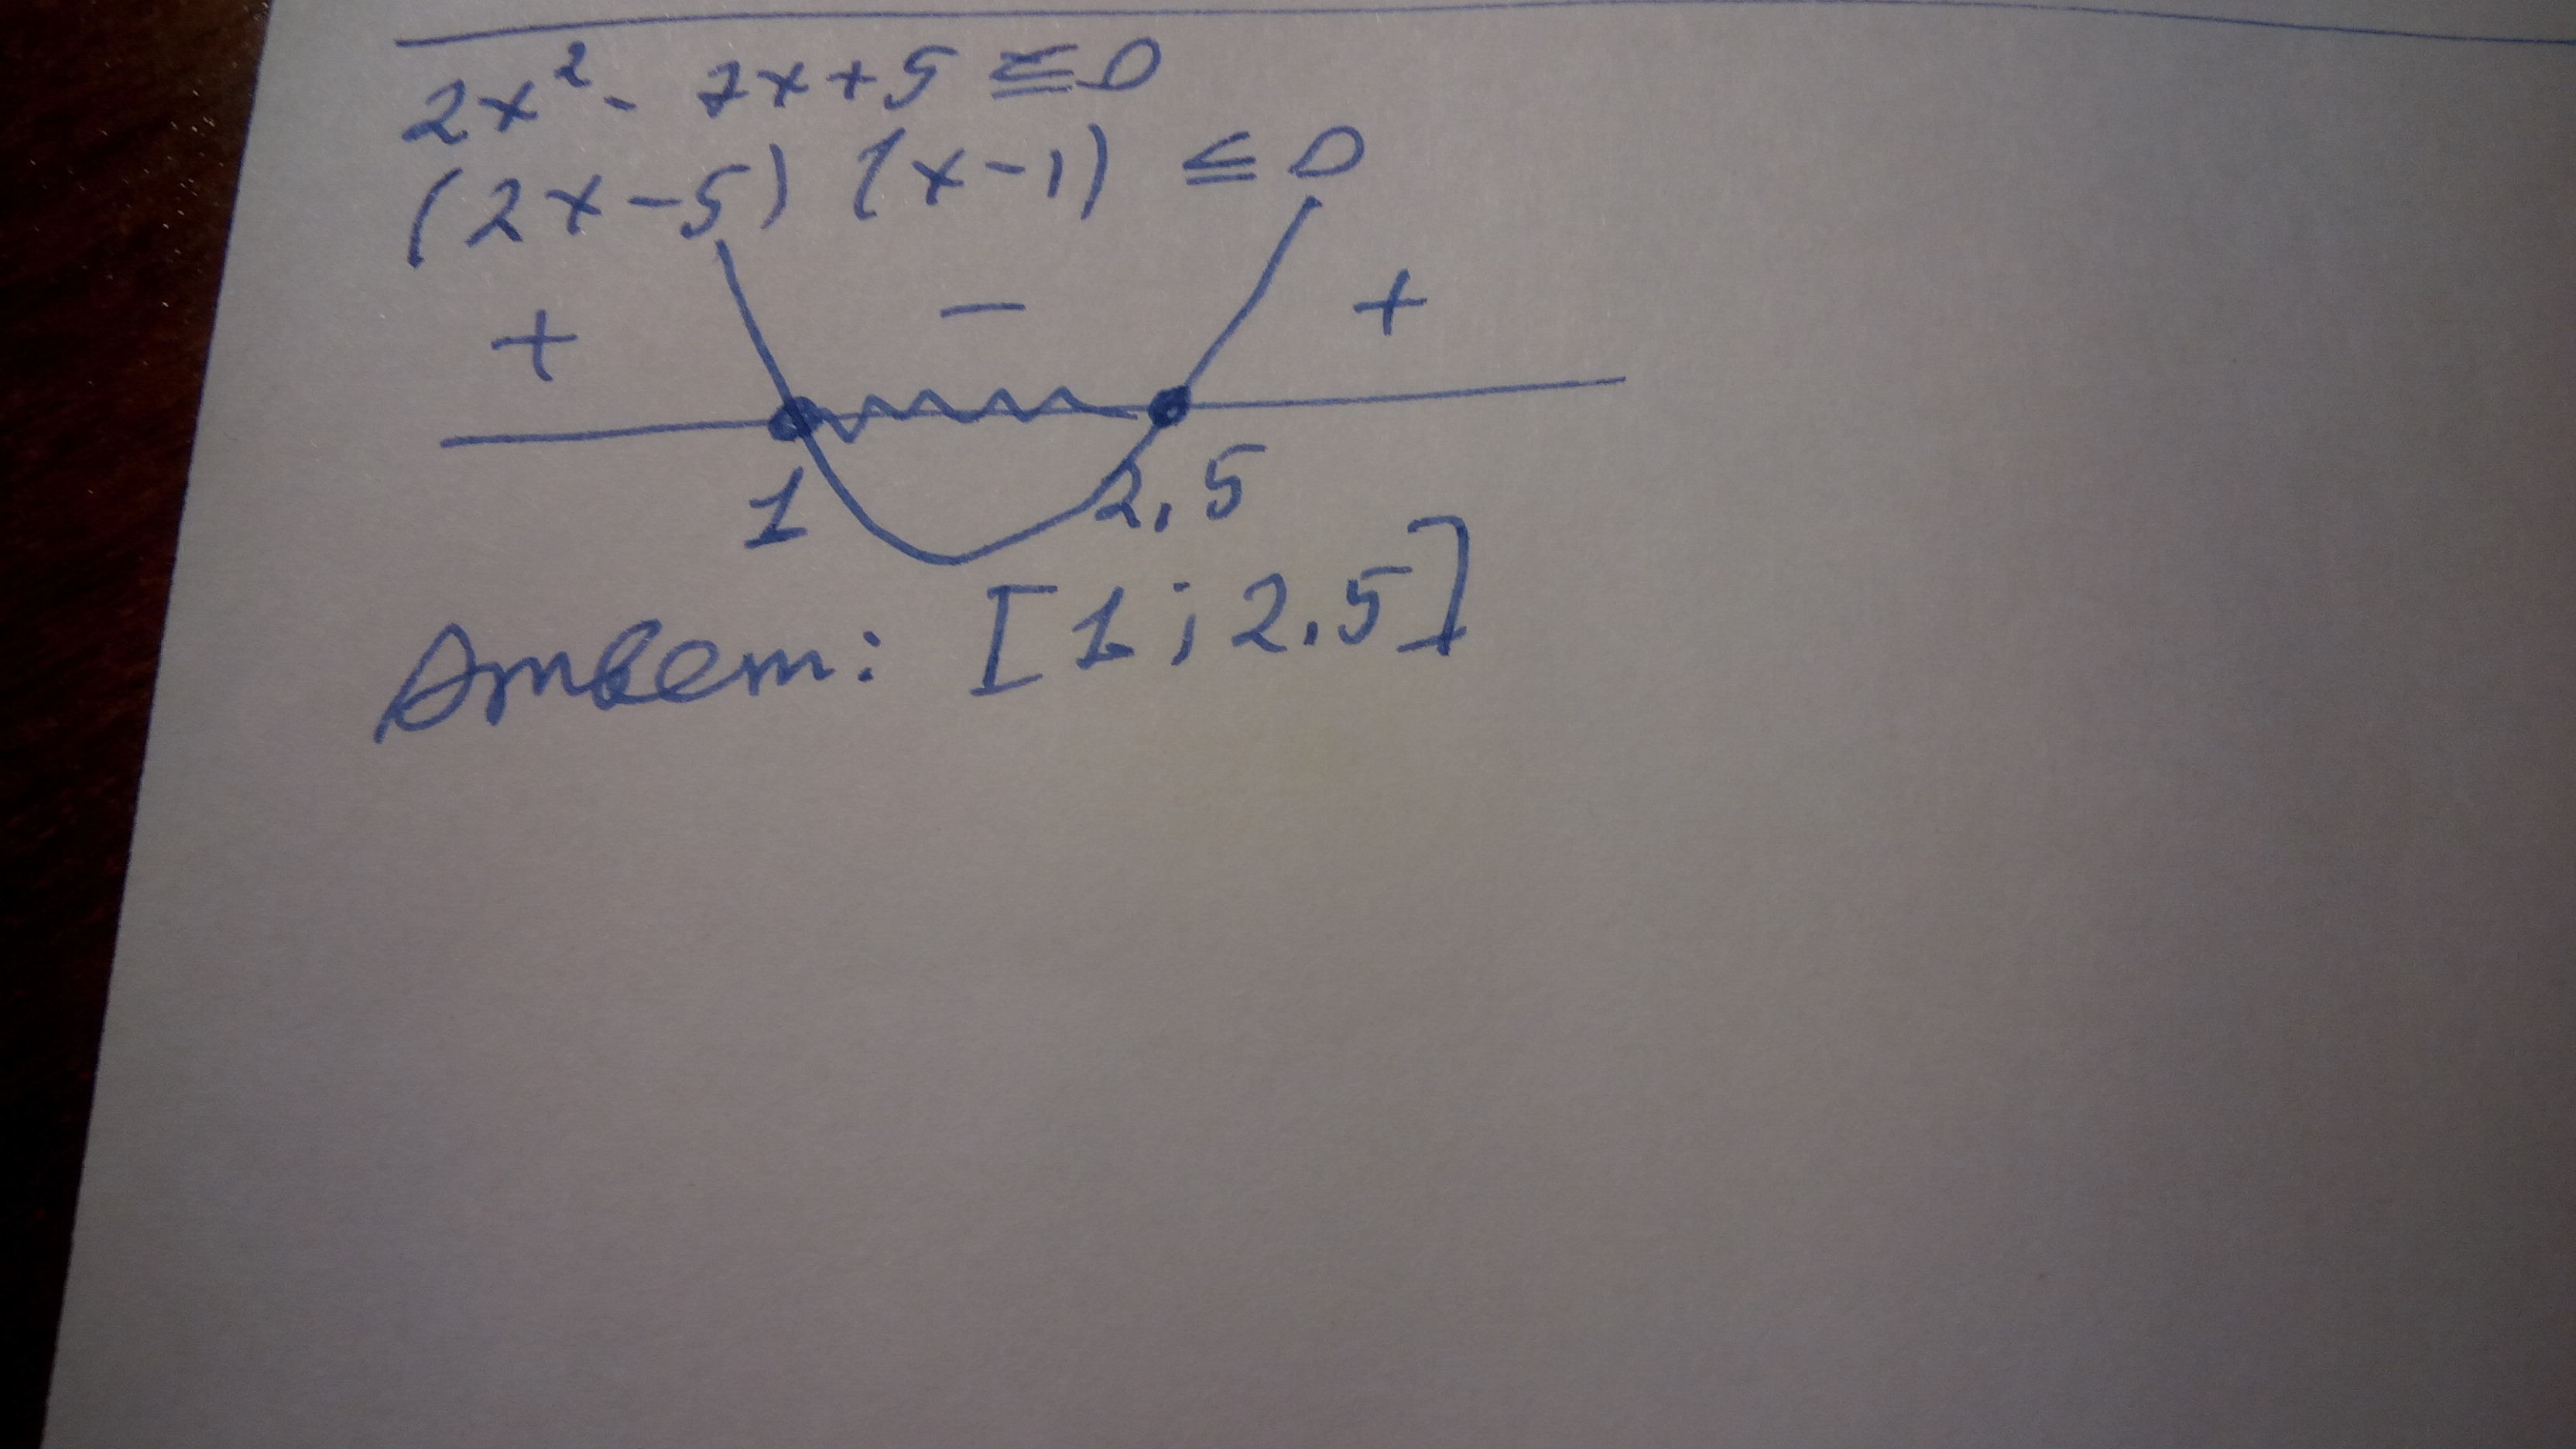 2x² - 7x + 5 ≤ 0
(2x - 5) (x - 1) ≤ 0
+ − +
1 2,5
Ответ: [1; 2,5]